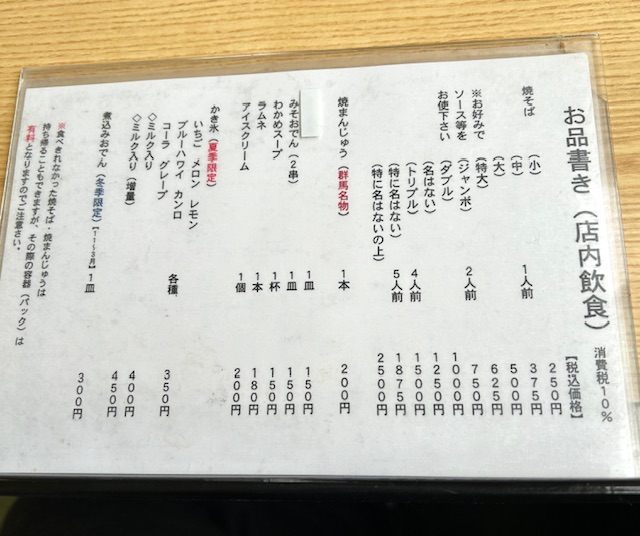 お品書き(店内飲食)
消費税10%
【税込価格】
焼そば (小) 250円
(中) 1人前 375円
(大) 500円
※お好みで (特大) 625円
ソース等を (ジャンボ) 2人前 750円
お使下さい (ダブル) 1000円
(名はない) 1250円
(トリプル) 4人前 1500円
(特に名はない) 5人前 1875円
(特に名はないの上) 2500円
焼まんじゅう(群馬名物) 1本 200円
1皿 150円
みそおでん(2串) 1皿 150円
わかめスープ 1杯 150円
ラムネ 1本 180円
アイスクリーム 1個 200円
かき氷(夏季限定)
いちご メロン レモン
ブルーハワイ カンロ
コーラ グレープ 各種 350円
◇ミルク入り 400円
◇ミルク入り(増量) 450円
煮込みおでん(冬季限定)【11~3月】1皿 300円
※食べきれなかった焼そば・焼まんじゅうは
持ち帰ることもできますが、その際の容器(パック)は
有料となりますのでご注意さい。